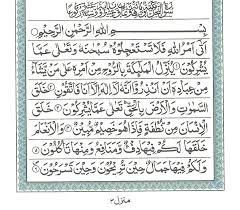 بِسْمِ اللهِ الرَّحْمٰنِ الرَّحِيْمِ
اَتٰۤى اَمْرُ اللهِ فَلَا تَسْتَعْجِلُوْهُ سُبْحٰنَهٗ وَتَعٰلٰى عَمَّا
يُشْرِكُوْنَ ۝ يُنَزِّلُ الْمَلٰٓئِكَةَ بِالرُّوْحِ مِنْ اَمْرِهٖ عَلٰى مَنْ يَّشَآءُ
مِنْ عِبَادِهٖۤ اَنْ اَنْذِرُوْۤا اَنَّهٗ لَاۤ اِلٰهَ اِلَّاۤ اَنَا فَاتَّقُوْنِ ۝ خَلَقَ
السَّمٰوٰتِ وَالْاَرْضَ بِالْحَقِّ تَعٰلٰى عَمَّا يُشْرِكُوْنَ ۝ خَلَقَ
الْاِنْسَانَ مِنْ نُّطْفَةٍ فَاِذَا هُوَ خَصِيْمٌ مُّبِيْنٌ ۝ وَالْاَنْعَامَ
خَلَقَهَا لَكُمْ فِيْهَا دِفْءٌ وَّمَنَافِعُ وَمِنْهَا تَاْكُلُوْنَ ۝
وَلَكُمْ فِيْهَا جَمَالٌ حِيْنَ تُرِيْحُوْنَ وَحِيْنَ تَسْرَحُوْنَ ۝
منزل ۳